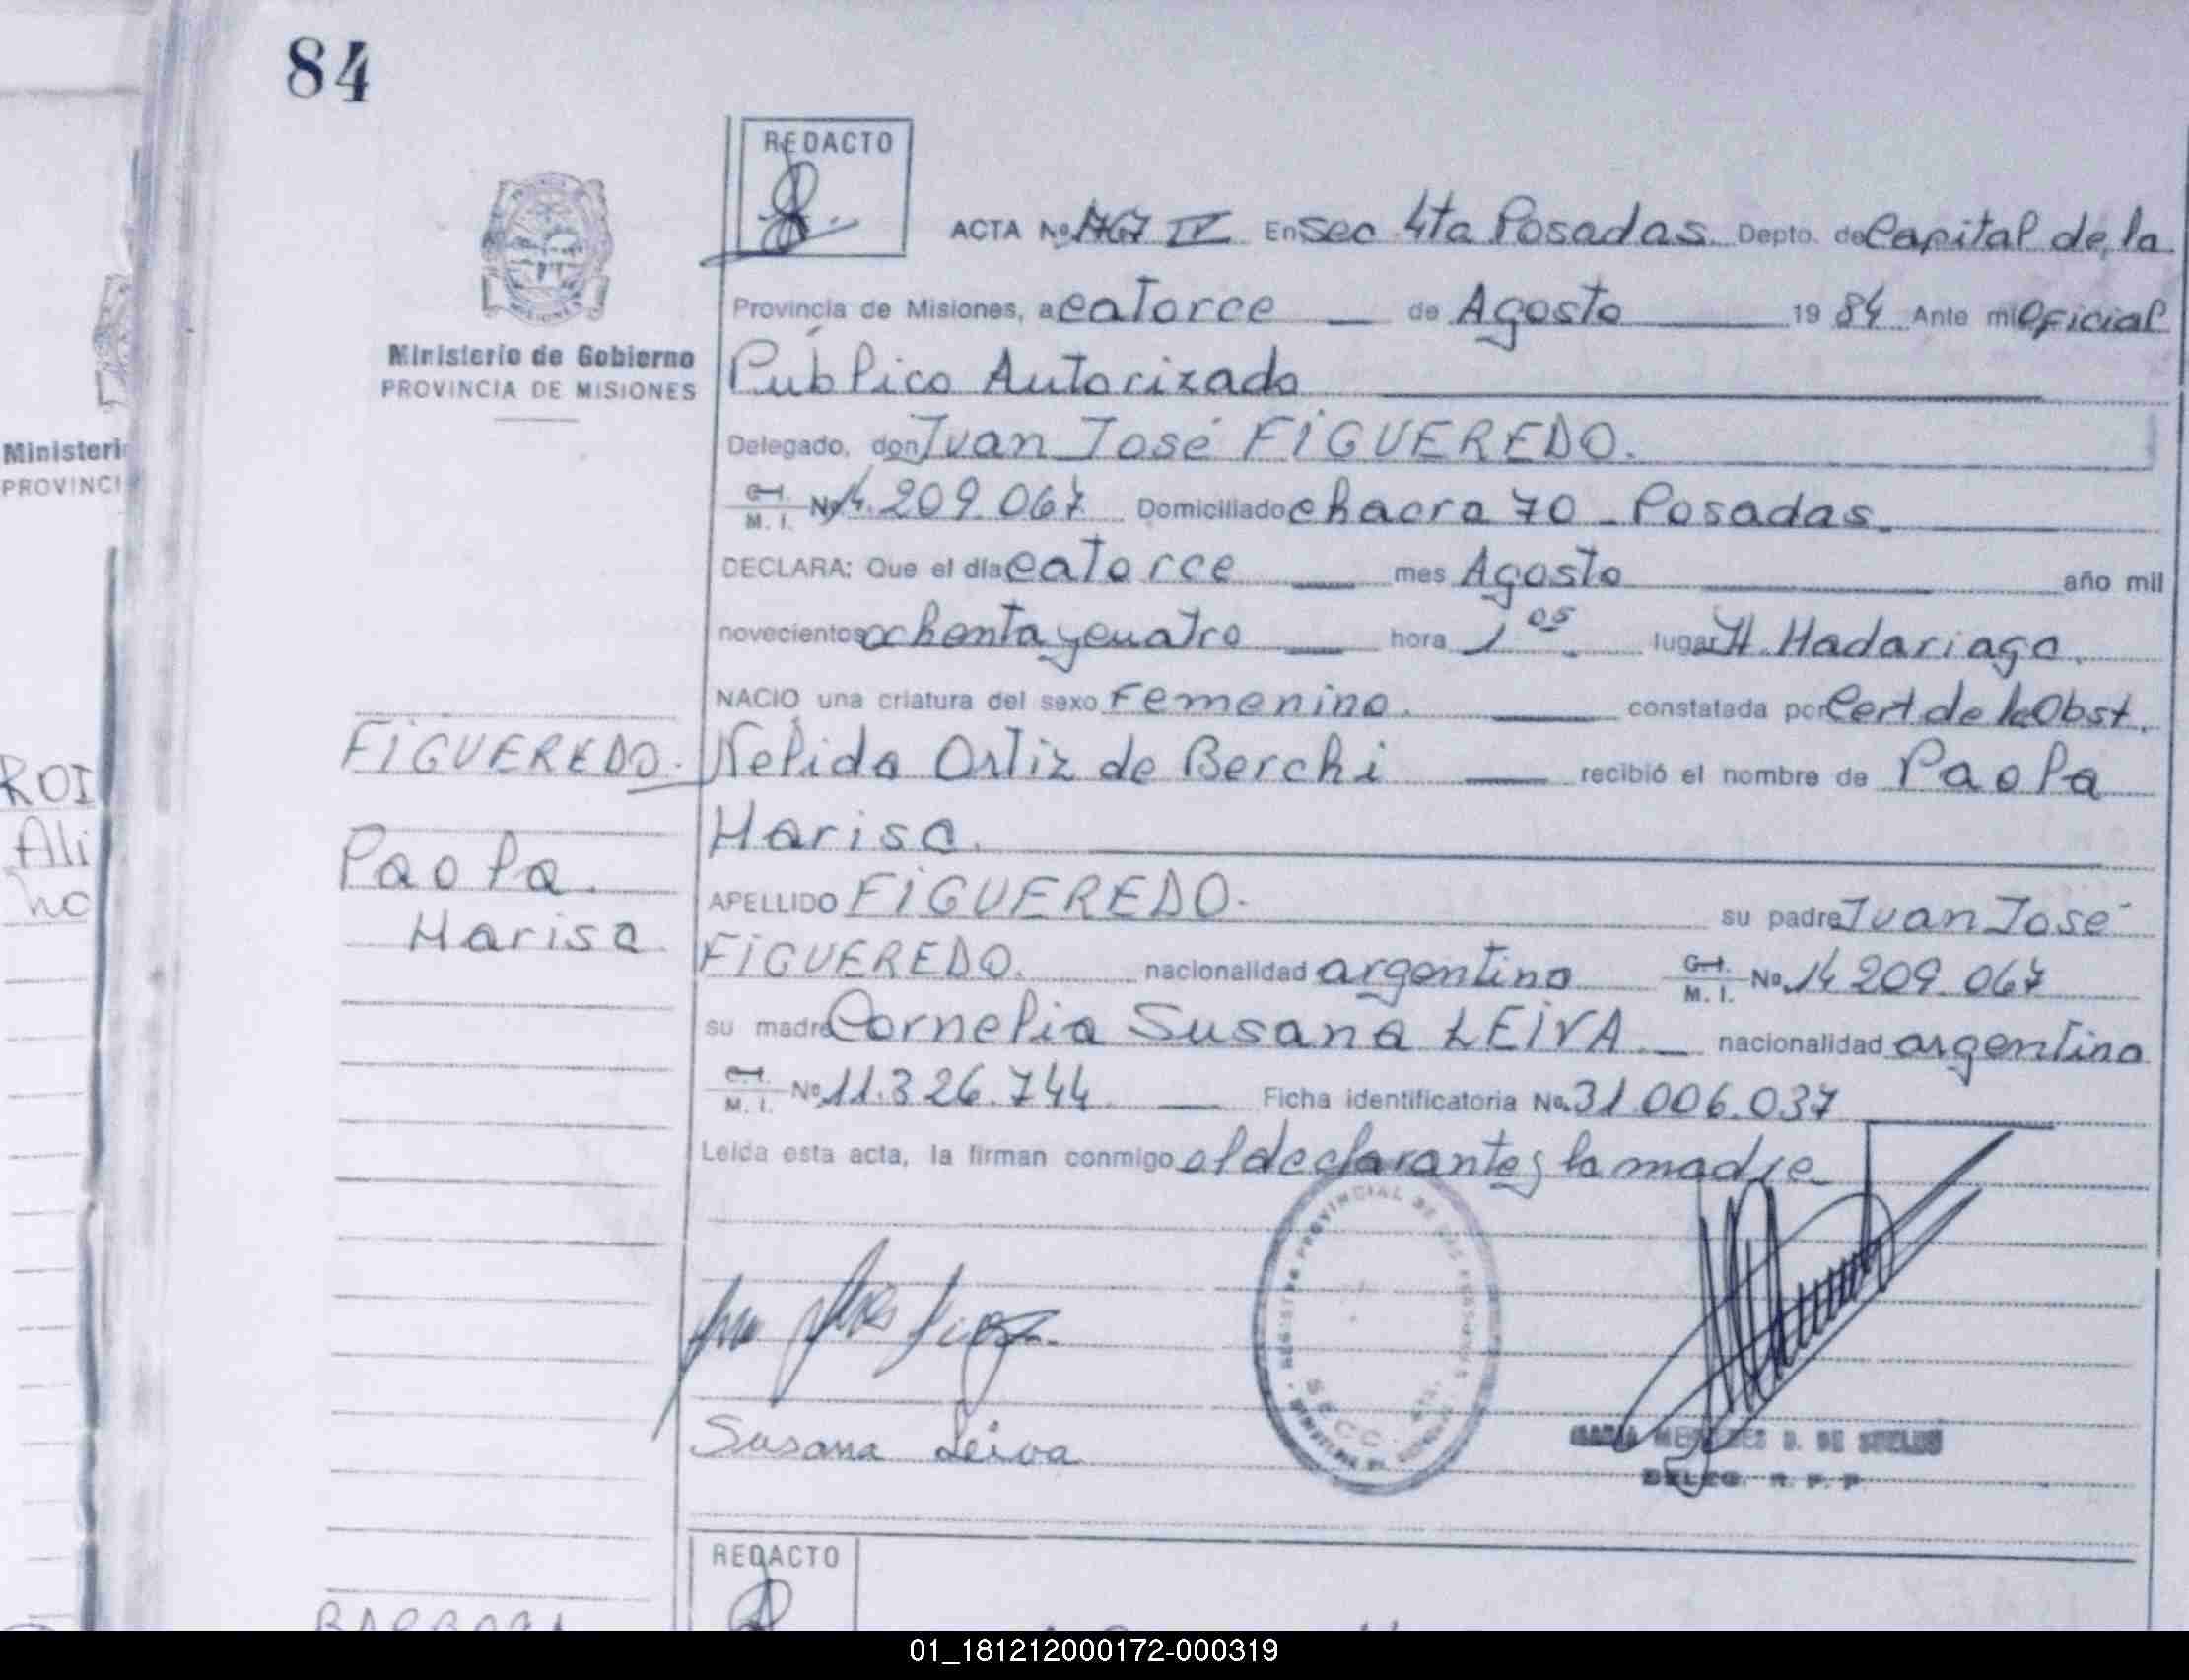 84
REDACTO
ACTA No. 767 IV En Sec 4ta Posadas. Depto. de Capital de la
Provincia de Misiones, a catorce de Agosto 1984 Ante mi Oficial
Ministerio de Gobierno
PROVINCIA DE MISIONES
Público Autorizado
Delegado, don Juan José FIGUEREDO.
C.I. M.I. No 14.209.067 Domiciliado chacra 70 - Posadas.
DECLARA: Que el día catorce mes Agosto año mil
novecientos ochenta y cuatro hora 1 05 lugar H. Madariaga.
NACIO una criatura del sexo Femenino. constatada por Cert de la Obst.
Nelida Ortiz de Berchi recibió el nombre de Paola
Marisa.
APELLIDO FIGUEREDO. su padre Juan José
FIGUEREDO. nacionalidad argentino C.I. M.I. No. 14.209.067
su madre Cornelia Susana LEIVA nacionalidad argentina
C.I. M.I. No. 11.326.744 Ficha identificatoria No. 31.006.037
Leída esta acta, la firman conmigo el declarante y la madre
FIGUEREDO.
Paola.
Marisa
Susana Leiva
SECC.
DELEG. R. P. P.
REDACTO
Ministeri
PROVINCI
ROI
Ali
01_181212000172-000319